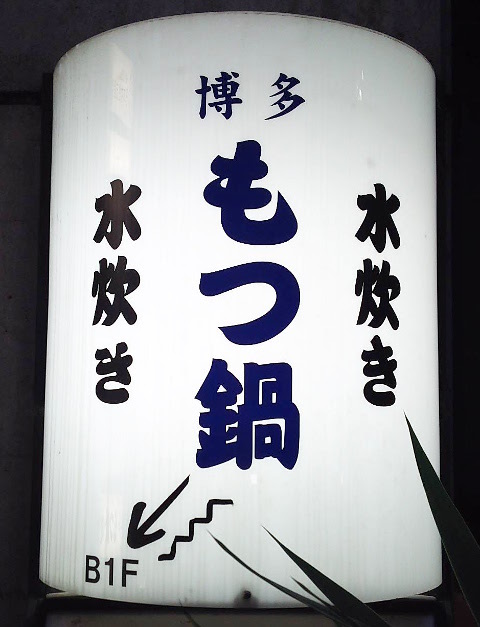 博多
もつ鍋
水炊き
水炊き
B1F